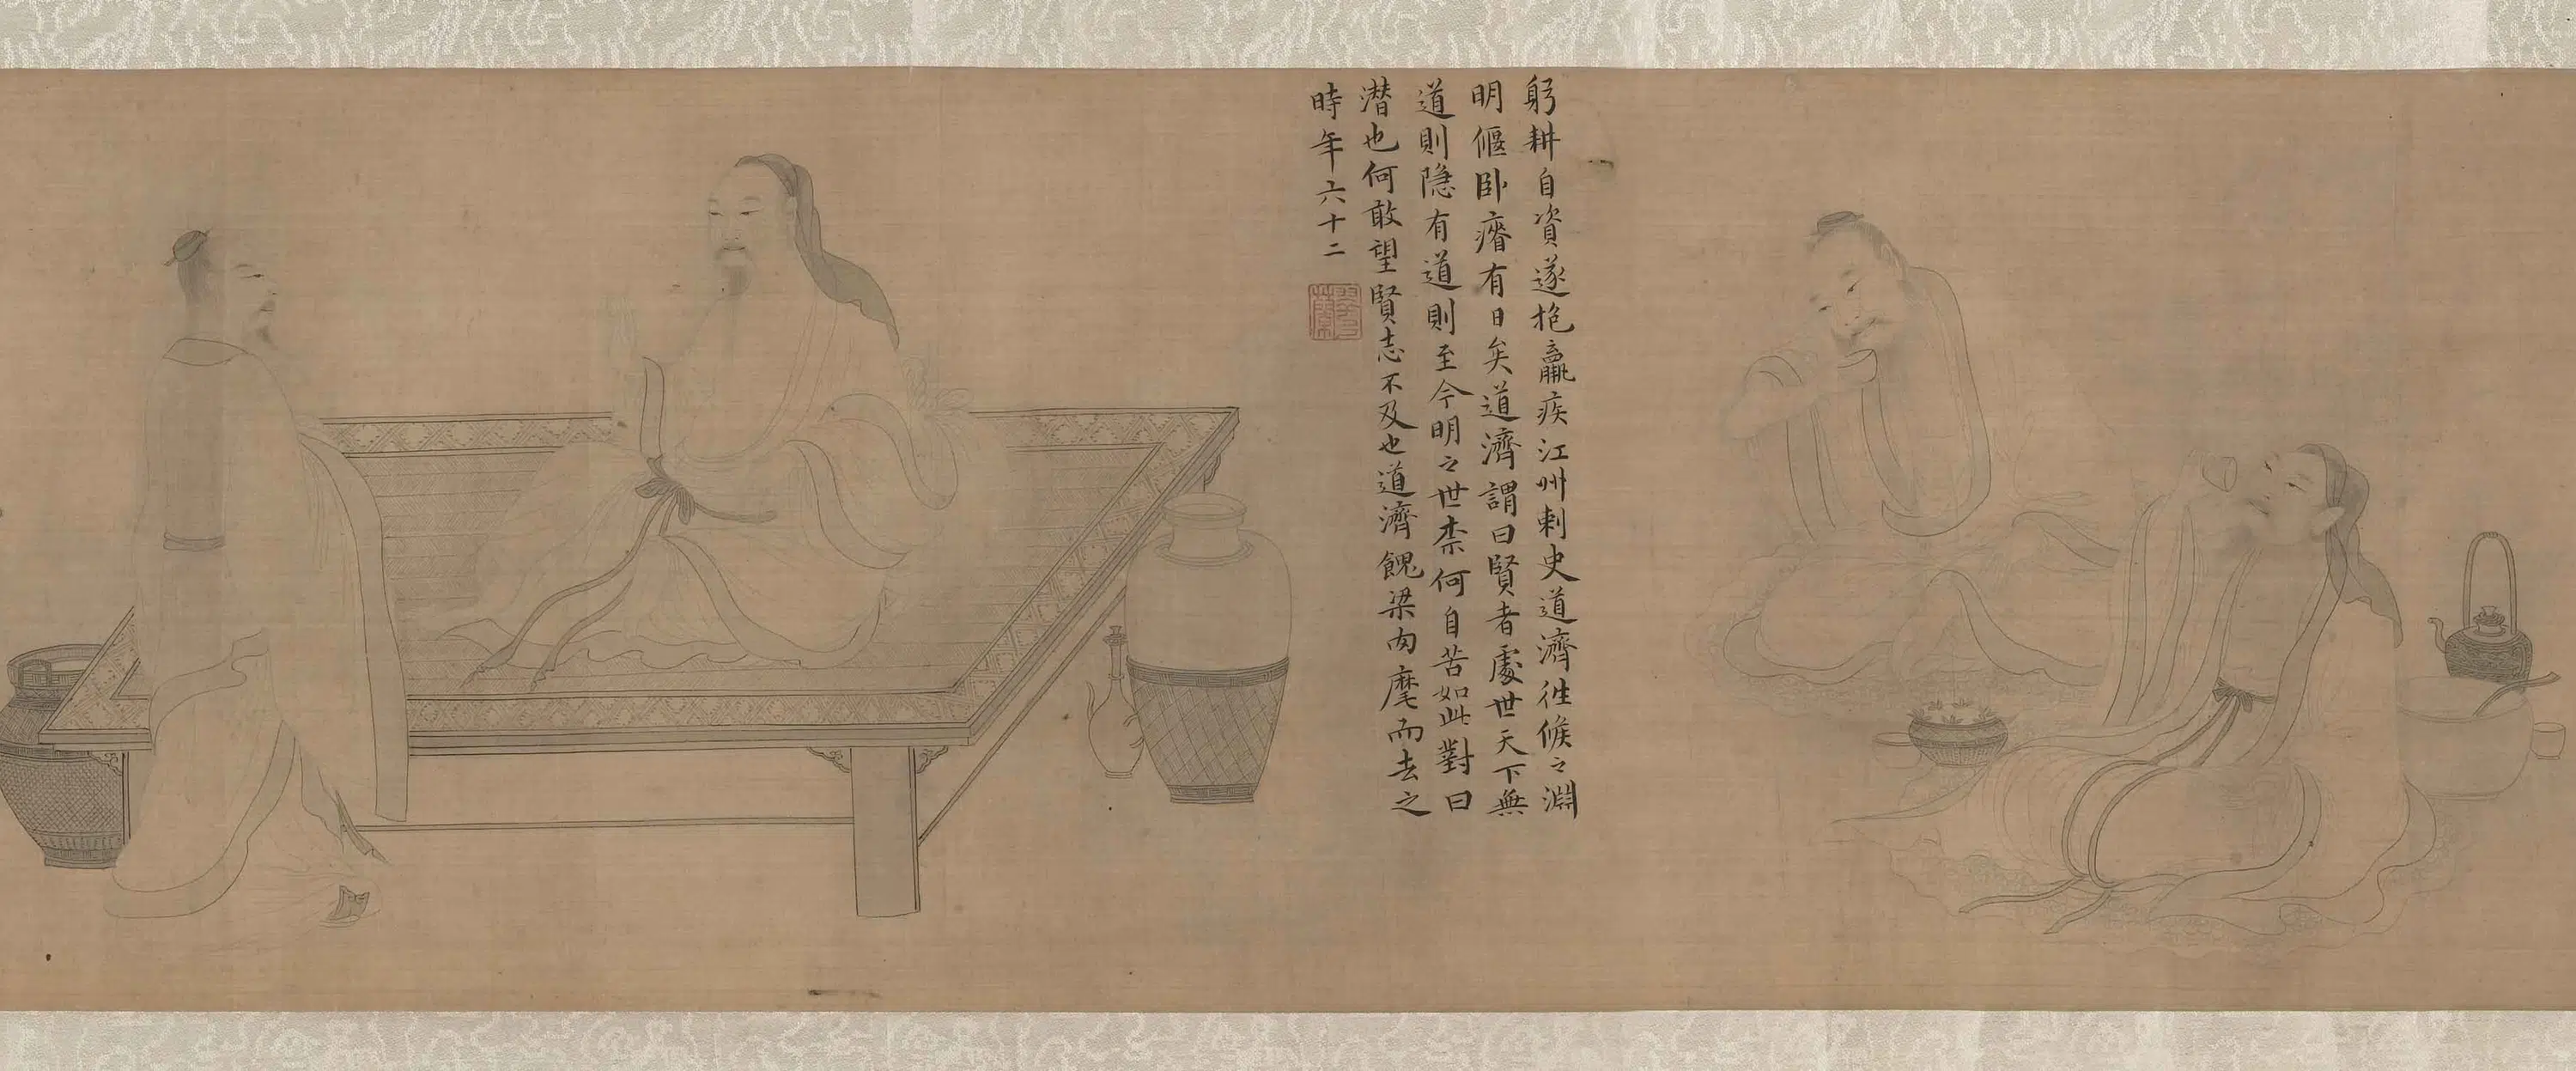 躬耕自資遂抱羸疾江州刺史道濟往候之淵
明偃卧瘠有日矣道濟謂曰賢者處世天下無
道則隱有道則至今明之世柰何自苦如此對曰
潜也何敢望賢志不及也道濟餽粱肉麾而去之
時年六十二